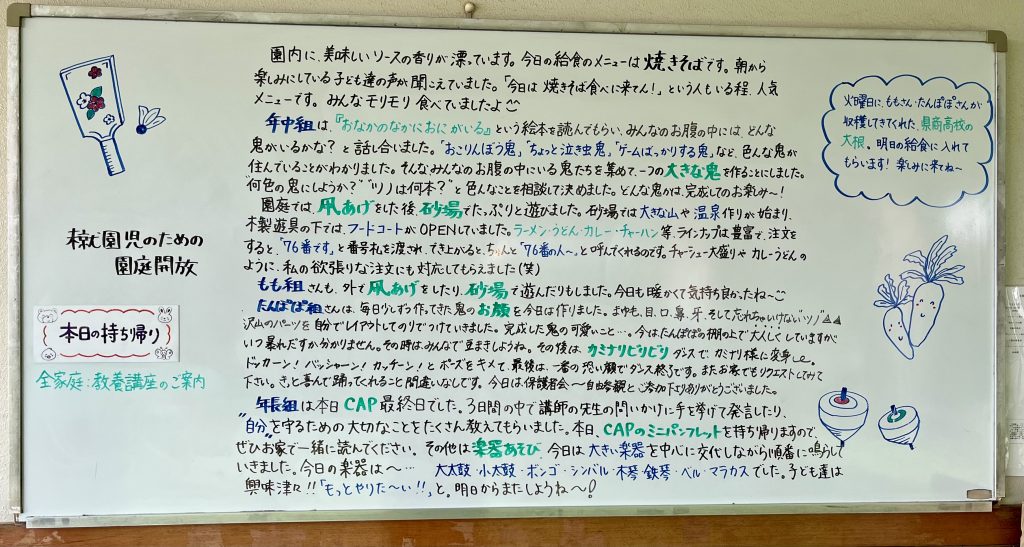 園内に、美味しいソースの香りが漂っています。今日の給食のメニューは焼きそばです。朝から
楽しみにしている子ども達の声が聞こえていました。「今日は焼きそば食べに来てん！」という人もいる程、人気
メニューです。みんなモリモリ食べていましたよ
年中組は、『おなかのなかにおにがいる』という絵本を読んでもらい、みんなのお腹の中には、どんな
鬼がいるかな？と話し合いました。"おこりんぼう鬼""ちょっと泣き虫鬼""ゲームばっかりする鬼"など、色んな鬼が
住んでいることがわかりました。そんなみんなのお腹の中にいる鬼たちを集めて、一つの大きな鬼を作ることにしました。
"何色の鬼にしようか？""ツノは何本？"と色んなことを相談して決めました。どんな鬼かは、完成してのお楽しみ〜！
園庭では、凧あげをした後、砂場でたっぷりと遊びました。砂場では大きな山や温泉作りが始まり、
木製遊具の下では、フードコートがOPENしていました。ラーメン・うどん・カレー・チャーハン等、ラインナップは豊富で、注文を
すると、「76番です」と番号札を渡され、でき上がると、ちゃんと「76番の人〜」と呼んでくれるのです。チャーシュー大盛りやカレーうどんの
ように、私の欲張りな注文にも対応してもらえました(笑)
もも組さんも、外で凧あげをしたり、砂場で遊んだりもしました。今日も暖かくて気持ち良かったね〜
たんぽぽ組さんは、毎日少しずつ作ってきた鬼のお顔を今日は作りました。まゆ毛、目、口、鼻、牙、そして忘れちゃいけない"ツノ"
沢山のパーツを自分でレイアウトしてのりでつけていきました。完成した鬼の可愛いこと…。今はたんぽぽの棚の上で大人しくしていますが
いつ暴れだすか分かりません。その時は、みんなで豆まきしようね。その後は、カミナリビリビリダンスで、カミナリ様に変身し
ドッカーン！バッシャーン！カッチーン！とポーズをキメて、最後は、一番の恐い顔でダンス終了です。またお家でもリクエストしてみて
下さい。きっと喜んで踊ってくれること間違いなしです。今日は保護者会〜自由参観とご参加下さりありがとうございました。
年長組は本日CAP最終日でした。3日間の中で講師の先生の問いかけに手を挙げて発言したり、
"自分"を守るための大切なことをたくさん教えてもらいました。本日、CAPのミニパンフレットを持ち帰りますので、
ぜひお家で一緒に読んでください。その他は楽器あそび。今日は大きい楽器を中心に交代しながら順番に鳴らして
いきました。今日の楽器は〜…　大太鼓・小太鼓・ボンゴ・シンバル・木琴・鉄琴・ベル・マラカスでした。子ども達は
興味津々!!「もっとやりた〜い!!」と。明日からまたしようね〜！
園児のための
園庭開放
本日の持ち帰り
全家庭：教養講座のご案内
火曜日に、ももさん・たんぽぽさんが
収穫してきてくれた、県商高校の
大根。明日の給食に入れて
もらいます！楽しみに来てね〜